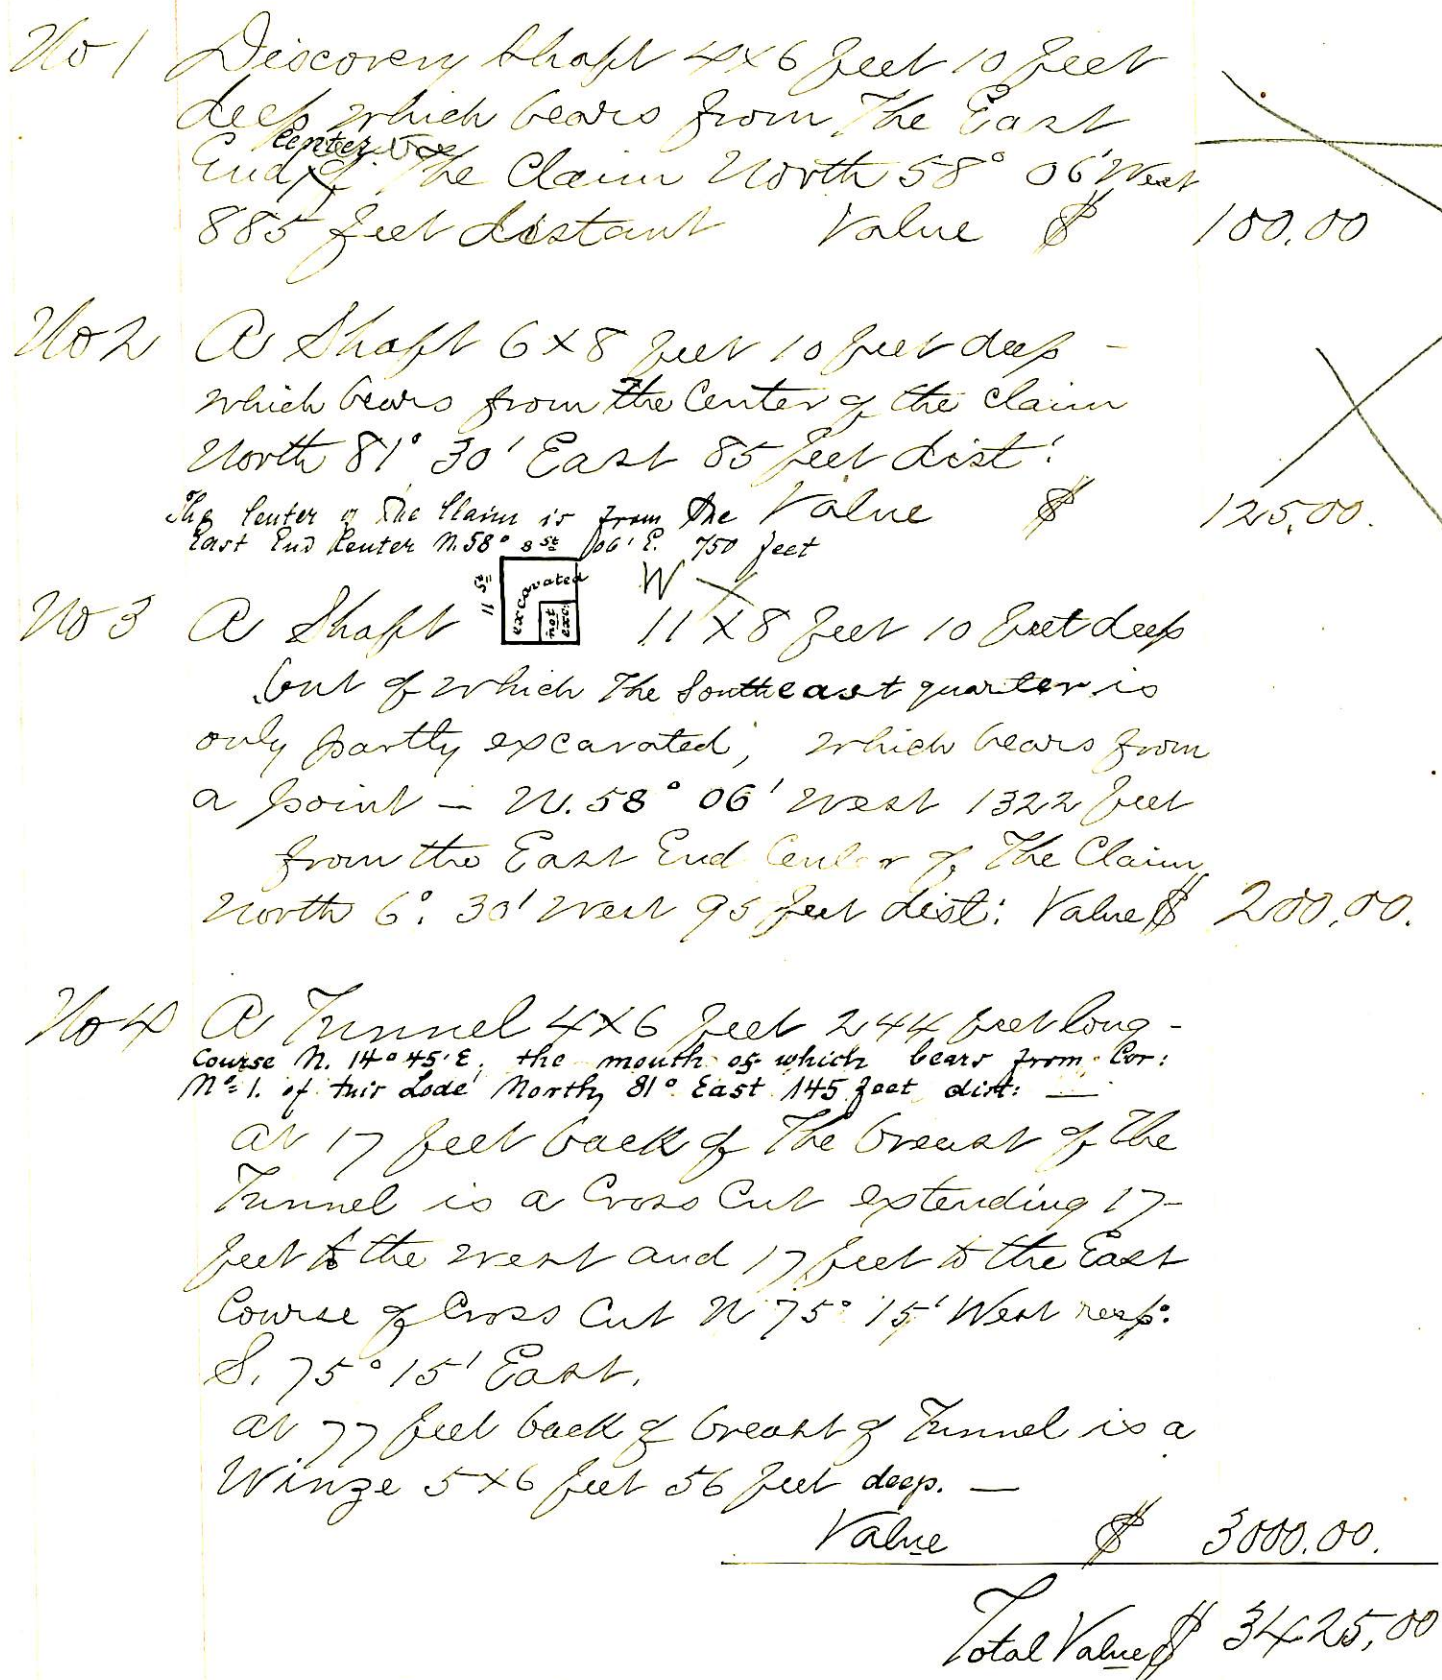 No 1 Discovery Shaft 4x6 feet 10 feet
deep which bears from The East
Center
End of The Claim North 58° 06' West
885 feet distant Value $ 100.00
No 2 A Shaft 6x8 feet 10 feet deep -
which bears from the Center of the Claim
North 81° 30' East 85 feet dist:
The Center of the Claim is from the Value $ 125.00.
East End Center N. 58° 06' E. 750 feet
No 3 A Shaft 11 x 8 feet 10 feet deep
W
excavated
not exc:
but of which The Southeast quarter is
only partly excavated, which bears from
a point - N. 58° 06' West 1322 feet
from the East End Center of The Claim
North 6°. 30' West 95 feet dist: Value $ 200.00.
No 4 A Tunnel 4x6 feet 244 feet long -
Course N. 14° 45' E; the mouth of which bears from Cor:
No 1. of this Lode North 81° East 145 feet dist: —
at 17 feet back of The breast of The
Tunnel is a Cross Cut extending 17
feet to the West and 17 feet to the East
Course of Cross Cut N 75° 15' West resp:
S. 75° 15' East.
at 77 feet back of breast of Tunnel is a
Winze 5x6 feet 56 feet deep. —
Value $ 3000.00.
Total Value $ 3425.00